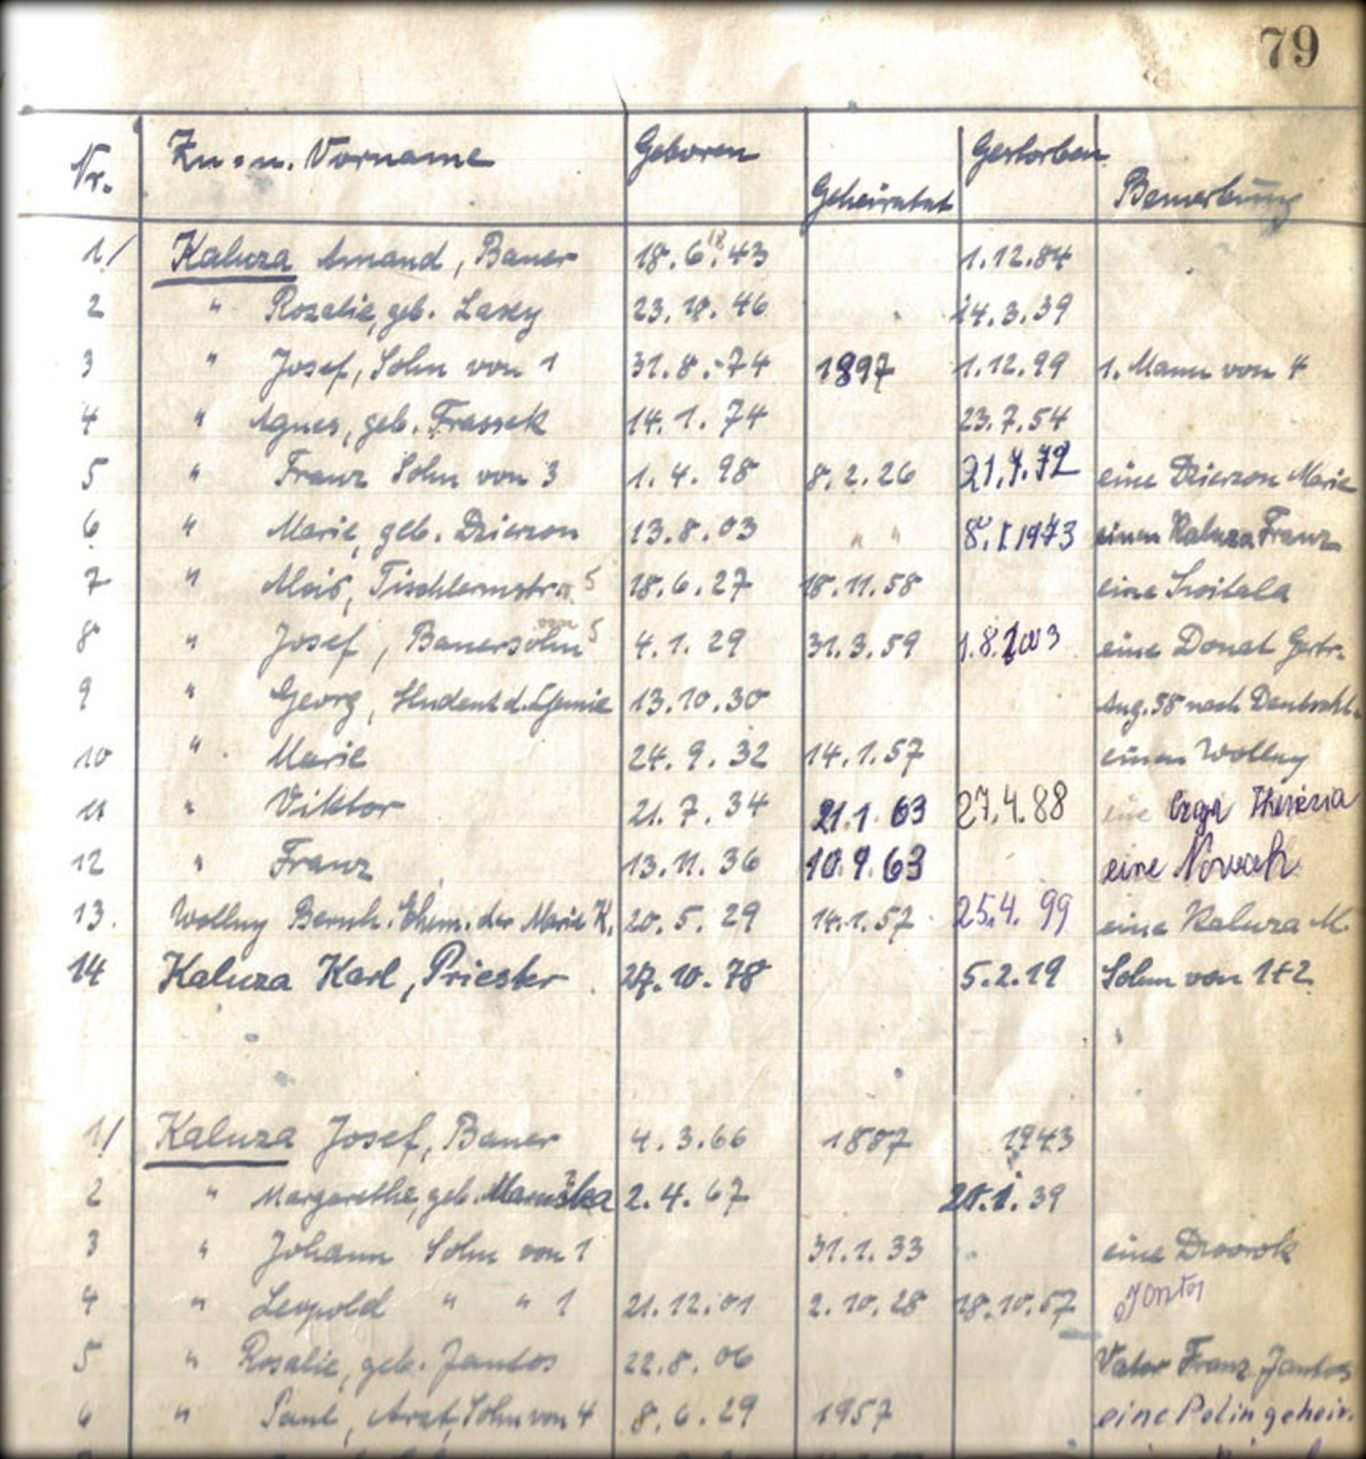 79
Nr. Zu= u. Vorname Geboren Geheiratet Gestorben Bemerkung
1/ Kaluza Amand, Bauer 18.6.18.43 1.12.84
2 " Rozalie, geb. Lasky 23.10.46 14.3.39
3 " Josef, Sohn von 1 31.8.-74 1897 1.12.99 1. Mann von 4
4 " Agnes, geb. Frassek 14.1.74 23.7.54
5 " Franz Sohn von 3 1.4.98 8.2.26 21.7.72 eine Dzierzon Marie
6 " Marie, geb. Dzierzon 13.8.03 " " 8.I.1973 einen Kaluza Franz
7 " Alois, Tischlermstr. 5 18.6.27 18.11.58 eine
8 " Josef, Bauersohn von 5 4.1.29 31.3.59 1.8.2003 eine Donat Gertr.
9 " Georg, Student d. Chemie 13.10.30 Aug. 58 nach Deutschl.
10 " Marie 24.9.32 14.1.57 einen Wollny
11 " Viktor 21.7.34 21.1.63 27.4.88 eine Theresia
12 " Franz 13.11.36 10.9.63 eine Nowak
13. Wollny Bernh. Ehem. der Marie K. 20.5.29 14.1.57 25.4.99 eine Kaluza M.
14 Kaluza Karl, Priester 27.10.78 5.2.19 Sohn von 1+2
1/ Kaluza Josef, Bauer 4.3.66 1887 1943
2 " Margarethe, geb. 2.4.67 20.1.39
3 " Johann Sohn von 1 31.1.33 eine Dworok
4 " Leopold " " 1 21.12.01 2.10.28 18.10.57 Jontos
5 " Rosalie, geb. Jantos 22.8.06 Vater Franz Jantos
6 " Paul, Arzt, Sohn von 4 8.6.29 1957 eine Polin geheir.